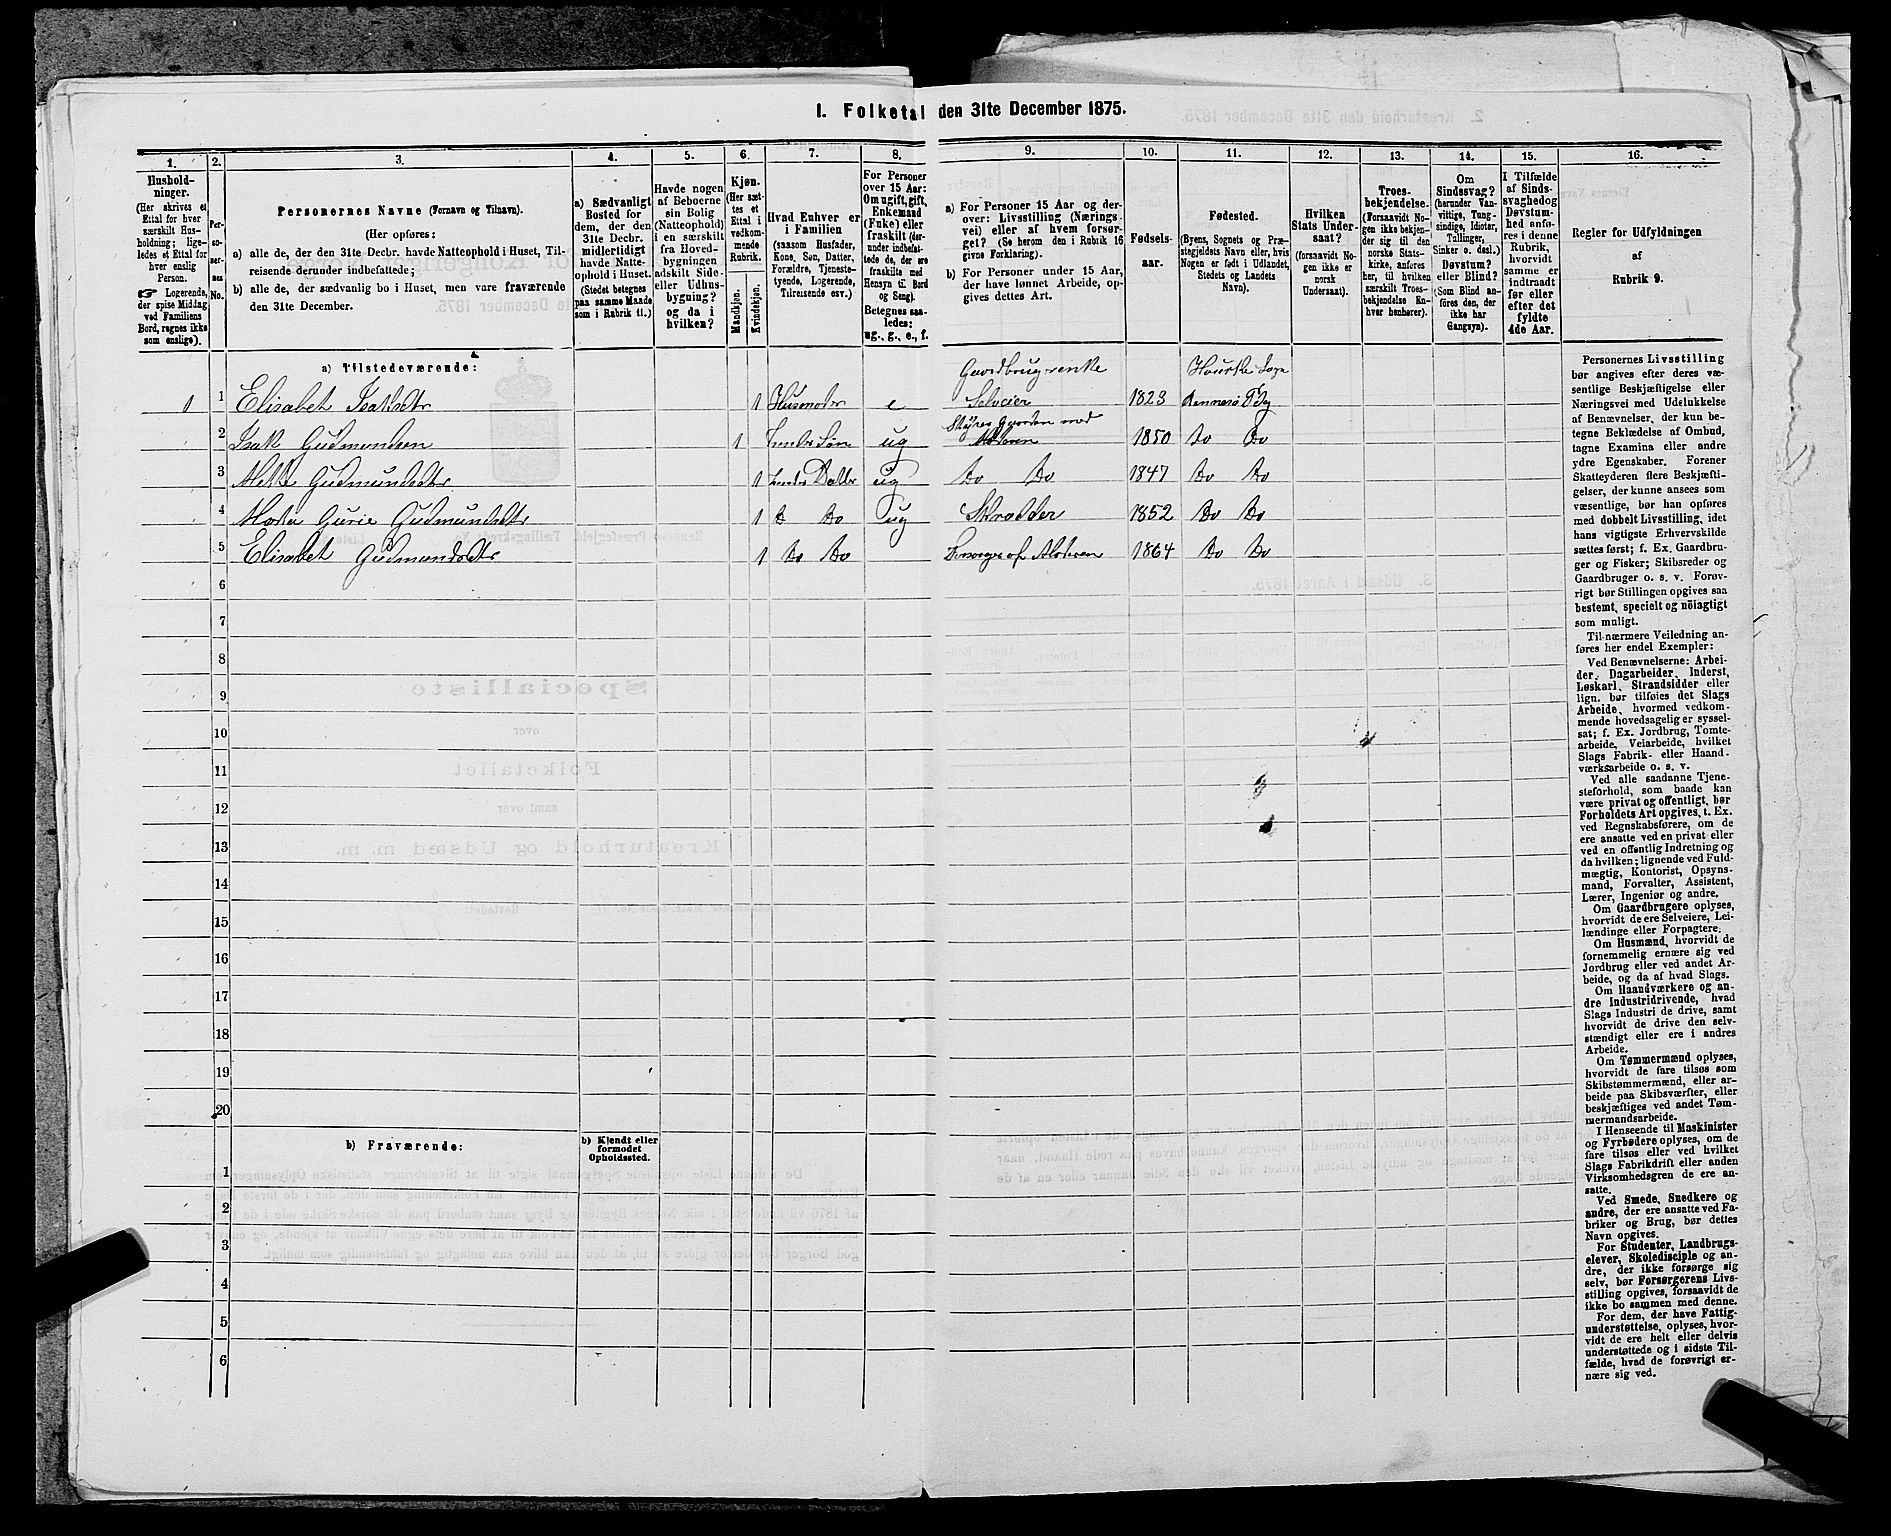 I. Folketal den 31te December 1875.
1. 2. 3. 4. 5. 6. 7. 8. 9. 10. 11. 12. 13. 14. 15. 16.
Hushold-
ninger.
(Her skrives et
Ettal for hver
særskilt Hus-
holdning; lige-
ledes et Ettal for
hver enslig
Person.
☞ Logerende,
der spise Middag
ved Familiens
Bord, regnes ikke
som enslige).
Per-
so-
ner-
nes
No.
Personernes Navne (Fornavn og Tilnavn).
(Her opføres:
a) alle de, der den 31te Decbr. havde Natteophold i Huset, Til-
reisende derunder indbefattede;
b) alle de, der sædvanlig bo i Huset, men vare fraværende
den 31te December.
a) Sædvanligt
Bosted for
dem, der den
31te Decbr.
midlertidigt
havde Natte-
ophold i Huset.
(Stedet betegnes
paa samme Maade
som i Rubrik 11.)
Havde nogen
af Beboerne
sin Bolig
(Natteophold)
i en særskilt
fra Hoved-
bygningen
adskilt Side-
eller Udhus-
bygning?
og da i
hvilken?
Kjøn.
(Her sæt-
tes et
Ettal i
vedkom-
mende
Rubrik.
Mandkjøn.
Kvindekjøn.
Hvad Enhver er
i Familien
(saasom Husfader,
Kone, Søn, Datter,
Forældre, Tjeneste-
tyende, Logerende,
Tilreisende osv.)
For Personer
over 15 Aar:
Om ugift, gift,
Enkemand
(Enke) eller
fraskilt (der-
under indbefat-
tede de, der ere
fraskilte med
Hensyn til Bord
og Seng).
Betegnes saa-
ledes:
ug., g., e., f.
a) For Personer 15 Aar og der-
over: Livsstilling (Nærings-
vei) eller af hvem forsør-
get? (Se herom den i Rubrik 16
givne Forklaring).
b) For Personer under 15 Aar,
der have lønnet Arbeide, op-
gives dettes Art.
Fødsels-
aar.
Fødested.
(Byens, Sognets og Præ-
stegjeldets Navn eller, hvis
Nogen er født i Udlandet,
Stedets og Landets
Navn).
Hvilken
Stats Under-
saat?
(forsaavidt No-
gen ikke er
norsk
Undersaat).
Troes-
bekjendelse.
(Forsaavidt No-
gen ikke bekjen-
der sig til den
norske Stats-
kirke, anføres
her, til hvilken
særskilt Troes-
bekjendelse En-
hver henhører).
Om
Sindssvag?
(herunder Van-
vittige, Tung-
sindige, Idioter,
Tullinger,
Sinker o. desl.)
Døvstum?
eller Blind?
(Som Blind an-
føres den, der
ikke har
Gangsyn).
I Tilfælde
af Sinds-
svaghed og
Døvstum-
hed anfø-
res i denne
Rubrik,
hvorvidt
samme er
indtraadt
før eller
efter det
fyldte
4de Aar.
Regler for Udfyldningen
af
Rubrik 9.
a) Tilstedeværende:
Gaardbrugerenke
1 1 Elisabet Isaksdtr 1 Husmoder e Selveier 1823 Rennesø
2 Isak Gudmundsen 1 Søn ug Styrer Gaarden med Moderen 1850 Do Do
3 Mette Gudmundsdtr 1 Datter ug Do Do 1847 Do Do
4 Gurie Gudmundsdtr 1 D Do ug Skrædder 1852 Do Do
5 Elisabet Gudmundsdtr 1 Do Do Forsørges af Moderen 1864 Do Do
6
7
8
9
10
11
12
13
14
15
16
17
18
19
20
b) Fraværende:
b) Kjendt eller
formodet
Opholdssted.
1
2
3
4
5
6
Personernes Livsstilling
bør angives efter deres væ-
sentlige Beskjæftigelse eller
Næringsvei med Udelukkelse
af Benævnelser, der kun be-
tegne Beklædelse af Ombud,
tagne Examina eller andre
ydre Egenskaber. Forener
Skatteyderen flere Beskjæfti-
gelser, der kunne ansees som
væsentlige, bør han opføres
med dobbelt Livsstilling, idet
hans vigtigste Erhvervskilde
sættes først; f. Ex. Gaardbru-
ger og Fisker; Skibsreder og
Gaardbruger o. s. v. Forøv-
rigt bør Stillingen opgives saa
bestemt, specielt og nöiagtigt
som muligt.
Til nærmere Veiledning an-
føres her endel Exempler:
Ved Benævnelserne: Arbei-
der, Dagarbeider, Inderst,
Løskarl, Strandsidder eller
lign. bør tilføies det Slags
Arbeide, hvormed vedkom-
mende hovedsagelig er syssel-
sat; f. Ex. Jordbrug, Tomte-
arbeide, Veiarbeide, hvilket
Slags Fabrik- eller Haand-
værksarbeide o. s. v.
Ved alle saadanne Tjene-
steforhold, som baade kan
være privat og offentligt, bør
Forholdets Art opgives, t. Ex.
ved Regnskabsførere, om de
ere ansatte ved en privat eller
ved en offentlig Indretning og
da hvilken; lignende ved Fuld-
mægtig, Kontorist, Opsyns-
mand, Forvalter, Assistent,
Lærer, Ingeniør og andre.
Om Gaardbrugere oplyses,
hvorvidt de ere Selveiere, Lei-
lændinge eller Forpagtere.
Om Husmænd, hvorvidt de
fornemmelig ernære sig ved
Jordbrug eller ved andet Ar-
beide, og da af hvad Slags.
Om Haandværkere og an-
dre Industridrivende, hvad
Slags Industri de drive, samt
hvorvidt de drive den selv-
stændigt eller ere i andres
Arbeide.
Om Tømmermænd oplyses,
hvorvidt de fare tilsøs som
Skibstømmermænd, eller ar-
beide paa Skibsværfter, eller
beskjæftiges ved andet Tøm-
mermandsarbeide.
I Henseende til Maskinister
og Fyrbødere oplyses, om de
fare tilsøs eller ved hvilket
Slags Fabrikdrift eller anden
Virksomhedsgren de ere an-
satte.
Ved Smede, Snedkere og
andre, der ere ansatte ved Fa-
briker og Brug, bør dettes
Navn opgives.
For Studenter, Landbrugs-
elever, Skoledisciple og an-
dre, der ikke forsørge sig
selv, bør Forsørgerens Livs-
stilling opgives, forsaavidt de
ikke bo sammen med denne.
For dem, der have Fattig-
understøttelse, oplyses, hvor-
vidt de ere helt eller delvis
understøttede og i sidste Til-
fælde, hvad de forøvrigt er-
nære sig ved.